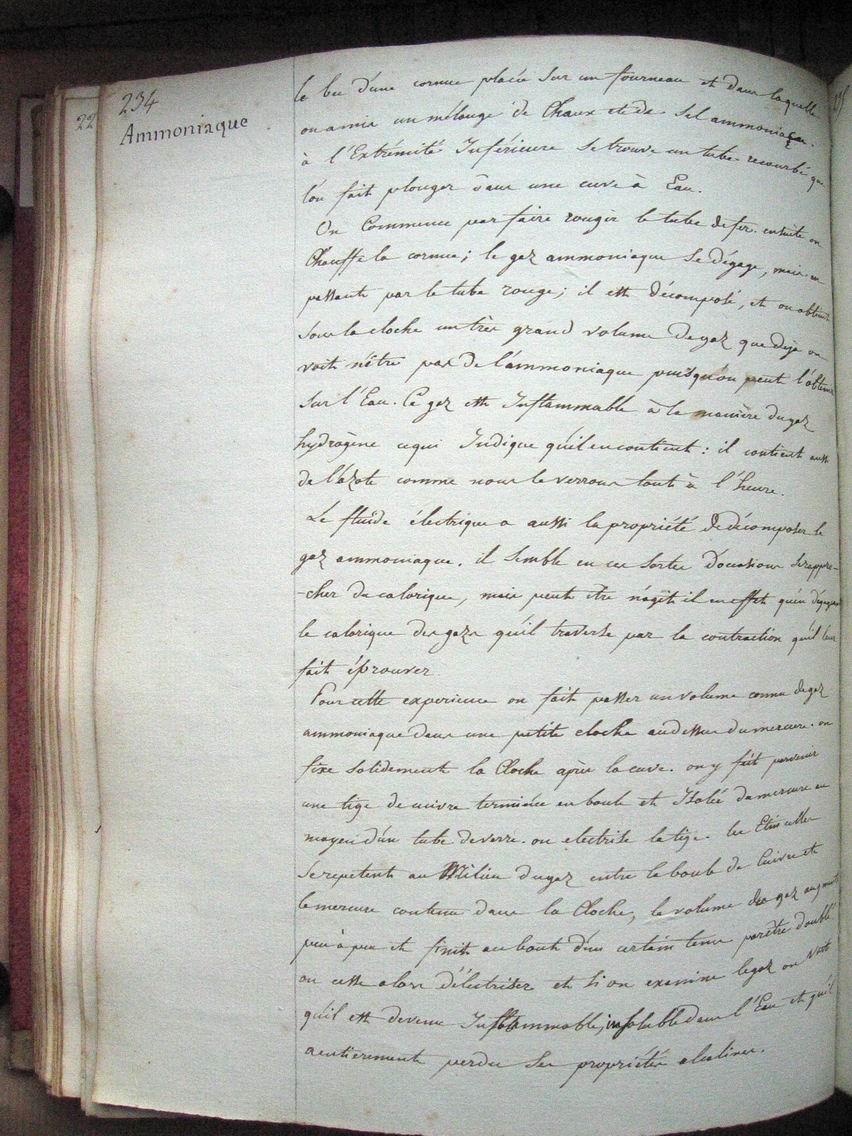 234
22
Ammoniaque
le bec d'une cornue placée sur un fourneau et dans laquelle
on a mis un mélange de Chaux et de Sel ammoniac.
à l'Extrémité Inférieure se trouve un tube recourbé que
l'on fait plonger dans une cuve à Eau.
On Commence par faire rougir le tube de fer. ensuite on
Chauffe la cornue; le gaz ammoniaque se dégage, mais en
passant par le tube rouge; il est décomposé, et on obtient
sous la cloche un très grand volume de gaz que deja on
voit n'être pas de l'ammoniaque puisqu'on peut l'obtenir
sur l'Eau. Ce gaz est Inflammable à la manière du gaz
hydrogène ce qui Indique qu'il en contient: il contient aussi
de l'azote comme nous le verrons tout à l'heure.
Le fluide électrique a aussi la propriété de décomposer le
gaz ammoniaque. il semble en ces sortes d'occasions se rappro-
-cher du calorique, mais peut être n'agit il en effet qu'en dégageant
le calorique des gazs qu'il traverse par la contraction qu'il leur
fait éprouver.
Pour cette experience on fait passer un volume connu de gaz
ammoniaque dans une petite cloche au dessus du mercure. on
fixe solidement la Cloche après la cuve. on y fait parvenir
une tige de cuivre terminée en boule et Isolée du mercure au
moyen d'un tube de verre. on electrise la tige. les Etincelles
se repetent au Milieu du gaz entre la boule de Cuivre et
le mercure contenu dans la Cloche, le volume des gaz augmente
peu à peu et finit au bout d'un certain tems parêtre doublé
on cesse alors d'électriser et si on examine le gaz on voit
qu'il est devenu Inflammable, insoluble dans l'Eau et qu'il
a entierement perdu ses propriétés alcalines.